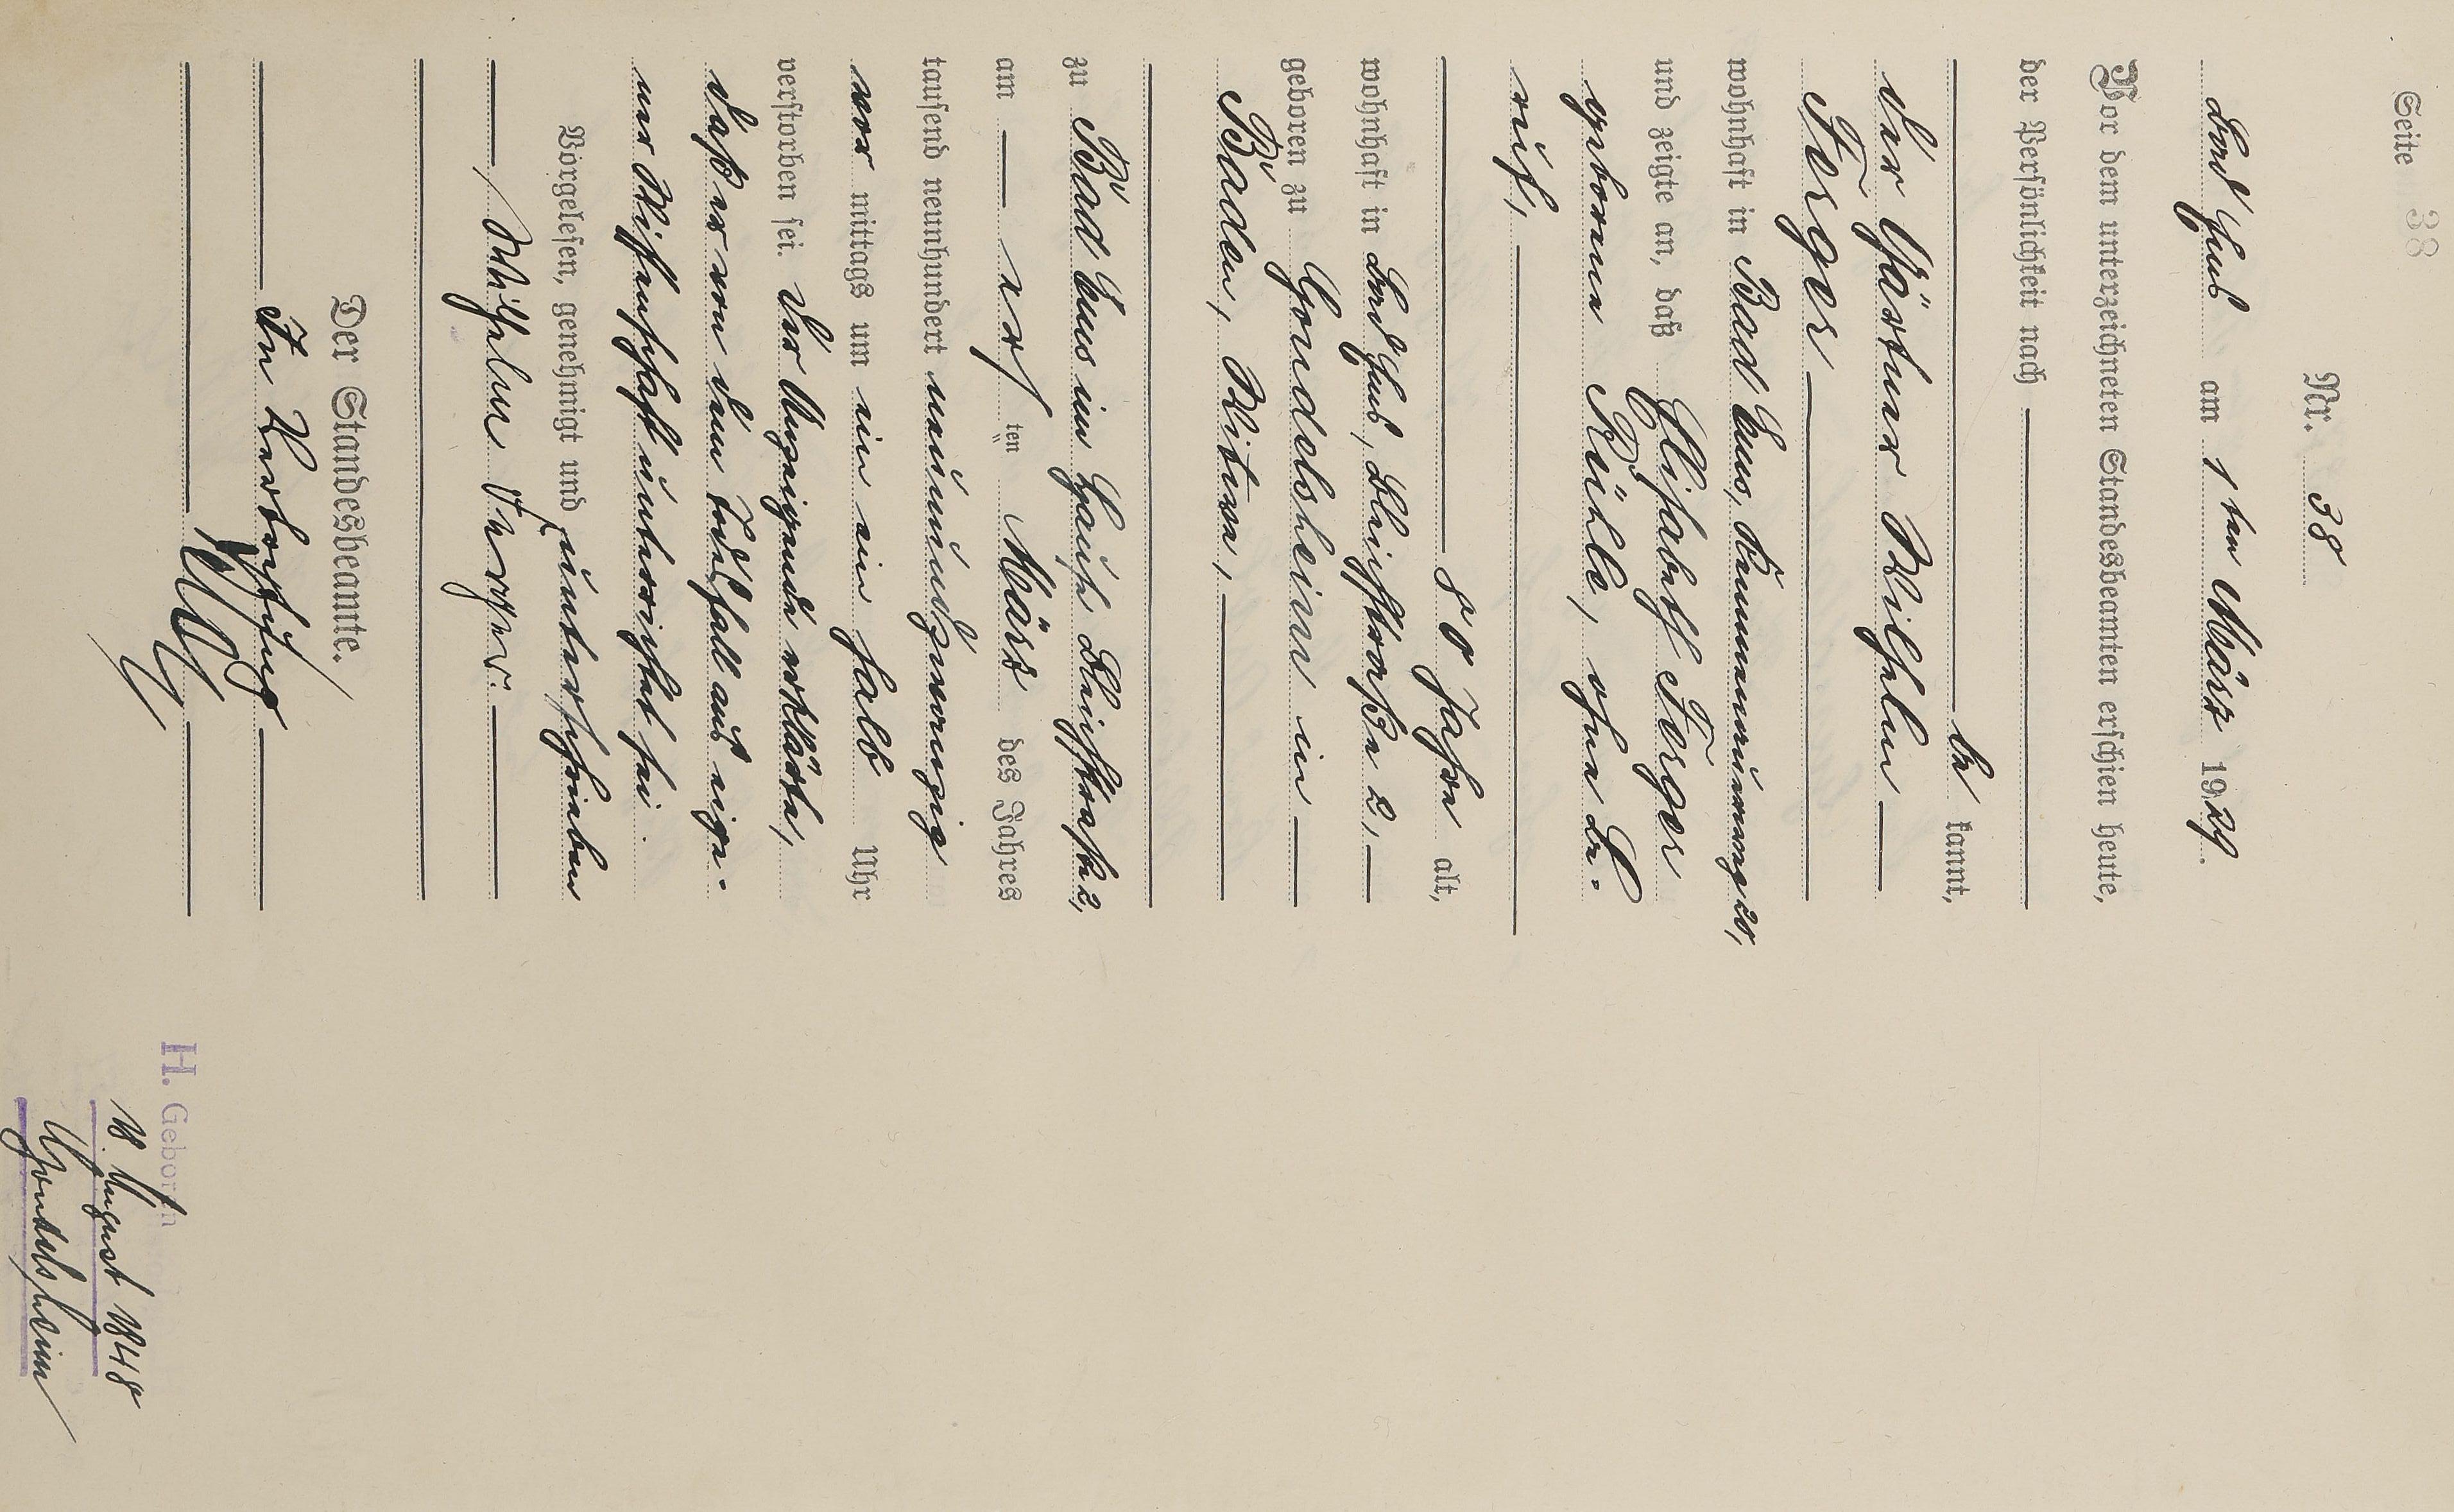 Seite 38
Nr. 38
Bad Ems am 1 ten März 1929.
Vor dem unterzeichneten Standesbeamten erschien heute,
der Persönlichkeit nach
be kannt,
der Gärtner Wilhelm
Ferger
wohnhaft in Bad Ems,
und zeigte an, daß Elisabeth Ferger
geborene Rühle, ohne Be-
ruf,
80 Jahre alt,
wohnhaft in Bad Ems, Bleichstraße 2,
geboren zu Gondelsheim in
Baden, Witwe,
zu Bad Ems im Hause Bleichstraße 2,
am ersten März des Jahres
tausend neunhundert neunundzwanzig
vor mittags um ein ein halb Uhr
verstorben sei. Der Anzeigende erklärte,
daß er von dem Todesfall aus eige-
ner Wissenschaft unterrichtet sei.
Vorgelesen, genehmigt und unterschrieben
Wilhelm Ferger.
Der Standesbeamte.
In Vertretung
H. Geboren
18. August 1848
Gondelsheim